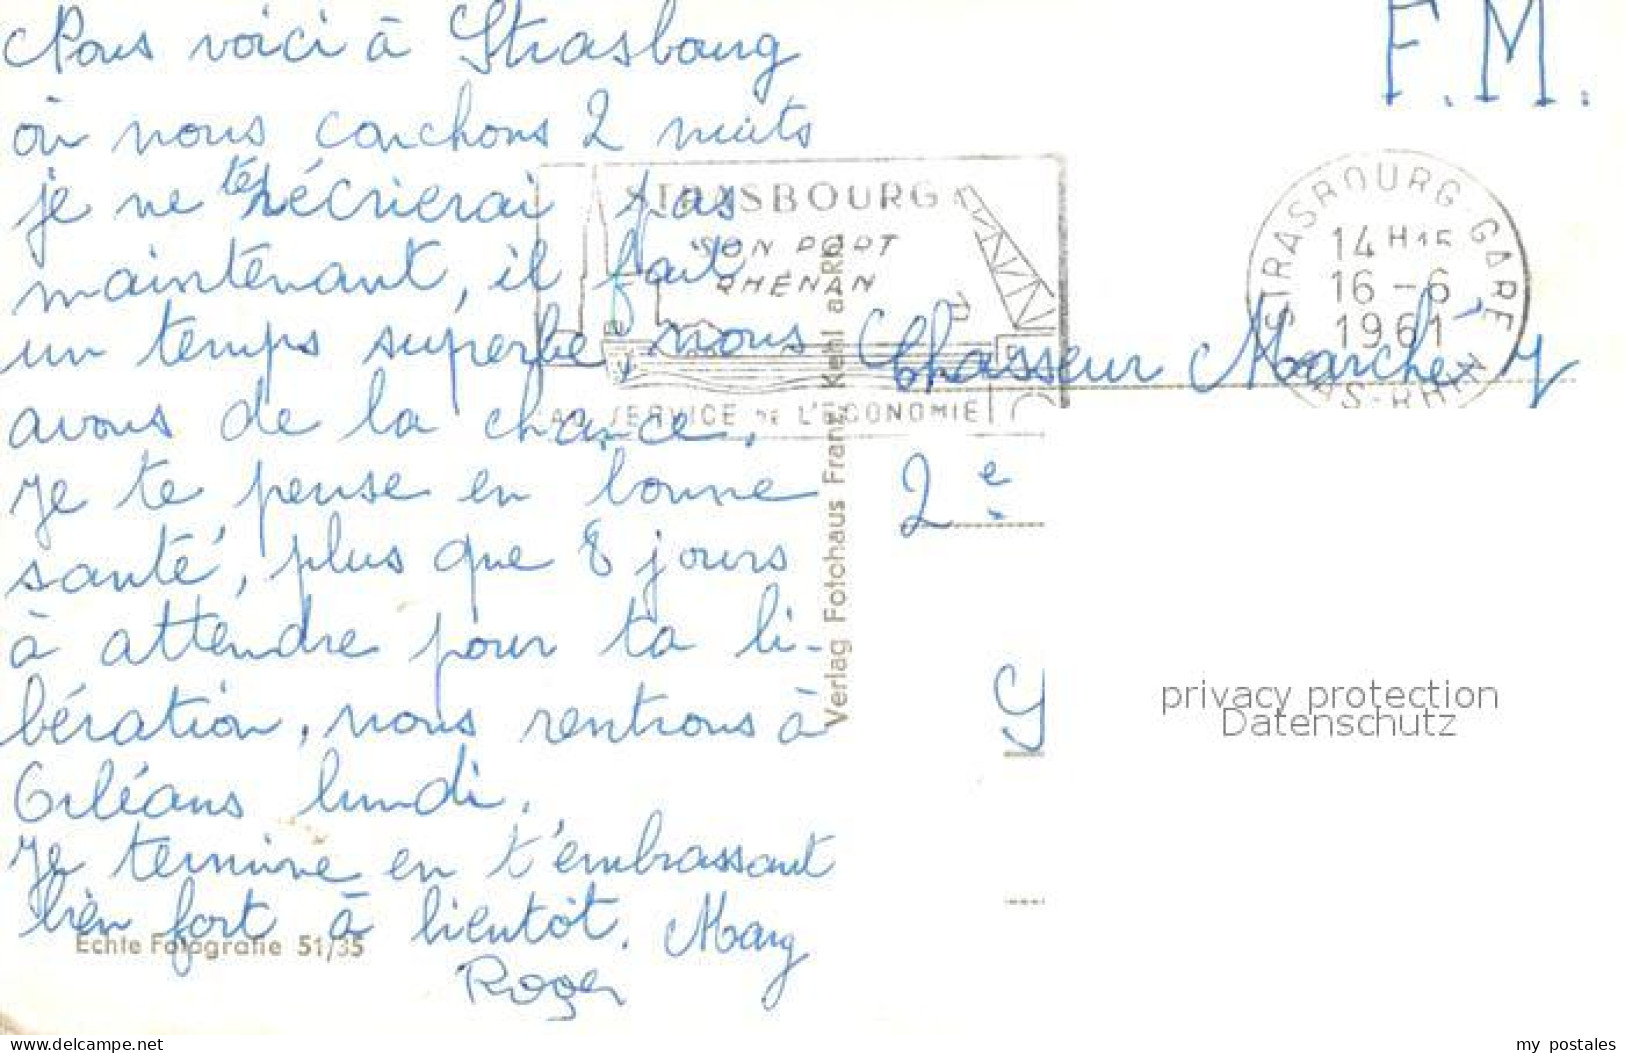 Nous voici à Strasbourg
où nous couchons 2 nuits
je ne te récrierai pas
maintenant, il fait
un temps superbe, nous
avons de la chance.
Je te pense en bonne
santé, plus que 8 jours
à attendre pour ta li-
bération, nous rentrons à
Orléans lundi.
Je termine en t'embrassant
bien fort à bientôt. Mary
Roger
Echte Fotografie 51/35
Verlag Fotohaus Franz Kehl a. Rh.
STRASBOURG
SON PORT
RHÉNAN
AU SERVICE DE L'ECONOMIE
F.M.
STRASBOURG-GARE
14 H 15
16 - 6
1961
BAS-RHIN
Chasseur Marché Y
2e
privacy protection
Datenschutz
www.delcampe.net
my_postales